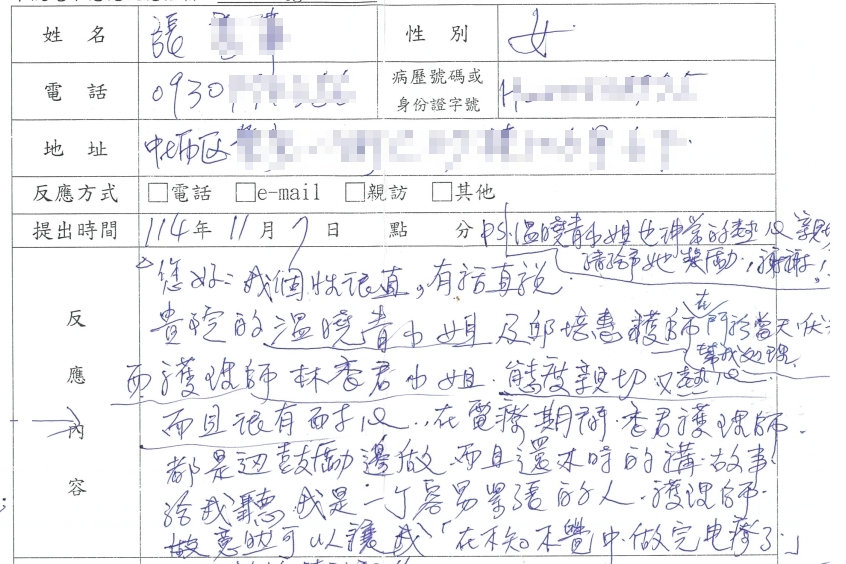 姓名 張 性別 女
電話 0930 病歷號碼或身份證字號 H
地址 中埔區
反應方式 □電話 □e-mail □親訪 □其他
提出時間 114年 11月 7日 點 分
PS.溫曉青小姐也非常的熱心親切
請給她獎勵,謝謝!
反應內容
您好:我個性很直。有話直說
貴院的溫曉青小姐及邱培惠護師
在門診當天
幫我處理
而護理師林香君小姐.態度親切又熱心
而且很有耐心..在電療期間.香君護理師.
都是邊鼓勵邊做.而且還不時的講故事
給我聽.我是一個容易緊張的人.護理師.
故意 可以讓我「在不知不覺中.做完电療了.」